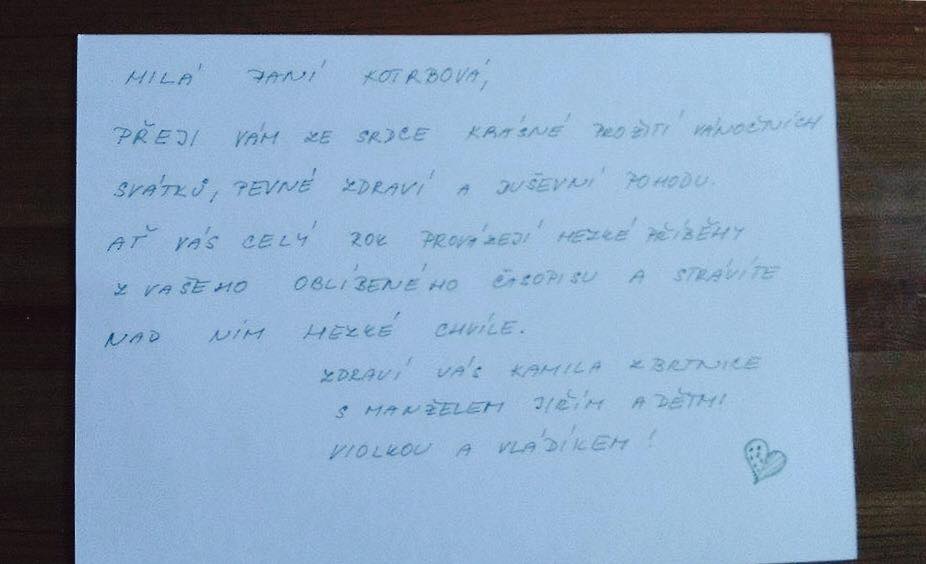 MILÁ PANÍ KOTRBOVÁ,
PŘEJI VÁM ZE SRDCE KRÁSNÉ PROŽITÍ VÁNOČNÍCH
SVÁTKŮ, PEVNÉ ZDRAVÍ A DUŠEVNÍ POHODU.
AŤ VÁS CELÝ ROK PROVÁZEJÍ HEZKÉ PŘÍBĚHY
Z VAŠEHO OBLÍBENÉHO ČASOPISU A STRÁVÍTE
NAD NÍM HEZKÉ CHVÍLE.
ZDRAVÍ VÁS KAMILA Z BRTNICE
S MANŽELEM JIŘÍM A DĚTMI
VIOLKOU A VLÁDÍKEM!